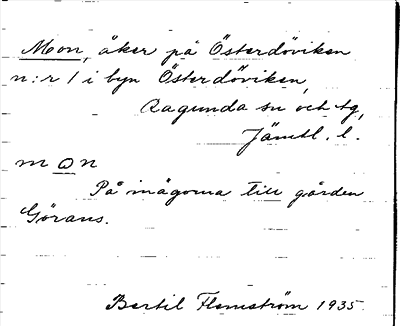 Mon, åker på Österdöviken
n:r 1 i byn Österdöviken,
Ragunda sn och tg,
Jämtl. l.
mon
På inägorna till gården
Görans.
Bertil Flemström 1935